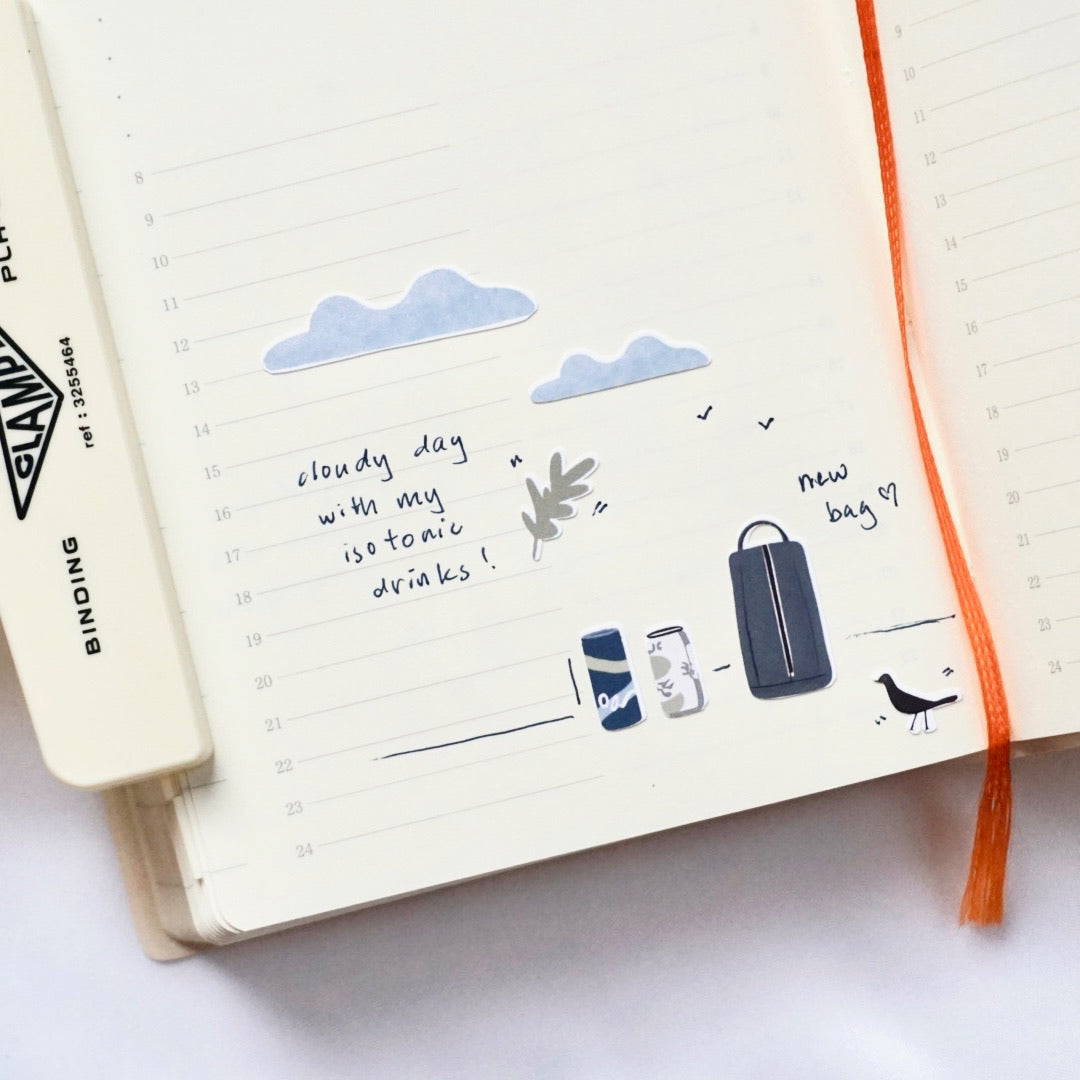 8
9
10
11
12
13
14
15
16
17
18
19
20
21
22
23
24
cloudy day
with my
isotonic
drinks!
new
bag♡
9
10
11
12
13
14
15
16
17
18
19
20
21
22
23
24
CLAMP
ref : 3255464
BINDING